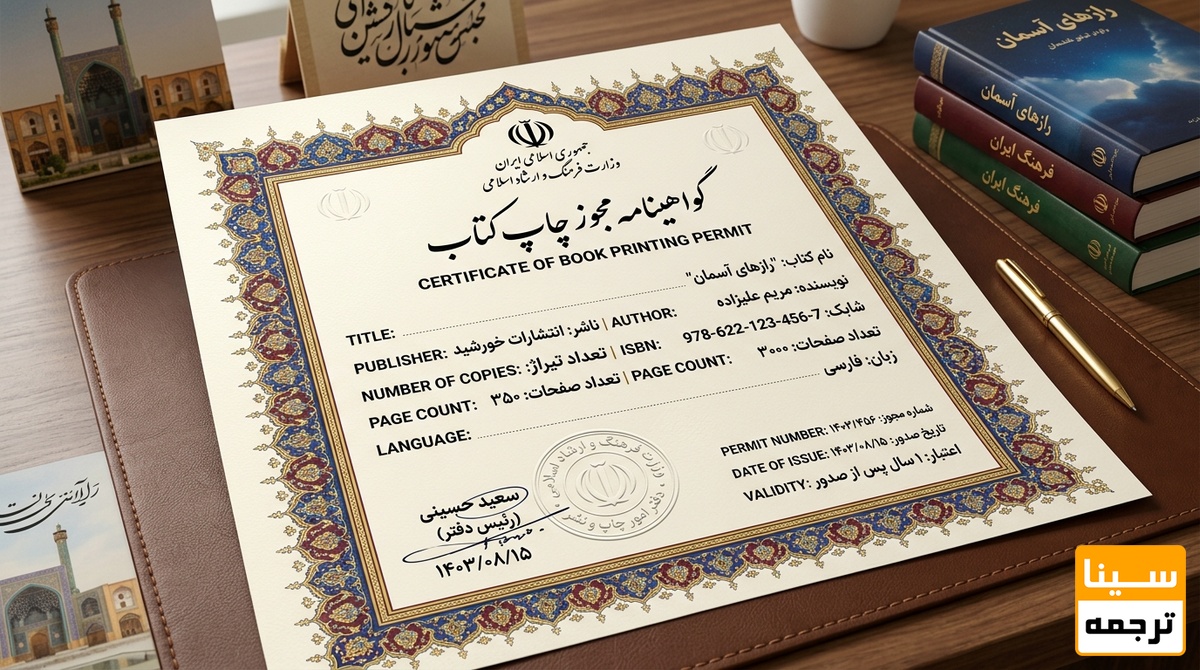 جمهوری اسلامی ایران
وزارت فرهنگ و ارشاد اسلامی
گواهینامه مجوز چاپ کتاب
CERTIFICATE OF BOOK PRINTING PERMIT
TITLE: نام کتاب: "رازهای آسمان"
PUBLISHER: ناشر: انتشارات خورشید | AUTHOR: نویسنده: مریم علیزاده
NUMBER OF COPIES: تعداد تیراژ: | ISBN: شابک: 978-622-123-456-7
PAGE COUNT: تعداد صفحات: ۳۵۰ | PAGE COUNT: تعداد صفحات: ۳۰۰۰
LANGUAGE: زبان: فارسی
PERMIT NUMBER: شماره مجوز: ۱۴۰۳/۴۵۶
DATE OF ISSUE: تاریخ صدور: ۱۴۰۳/۰۸/۱۵
VALIDITY: اعتبار: ۱ سال پس از صدور
سعید حسینی
(رئیس دفتر)
۱۴۰۳/۰۸/۱۵
وزارت فرهنگ و ارشاد اسلامی
دفتر امور چاپ و نشر
رازهای آسمان
رازهای آسمان
فرهنگ ایران
فرهنگ ایران
سینا
ترجمه